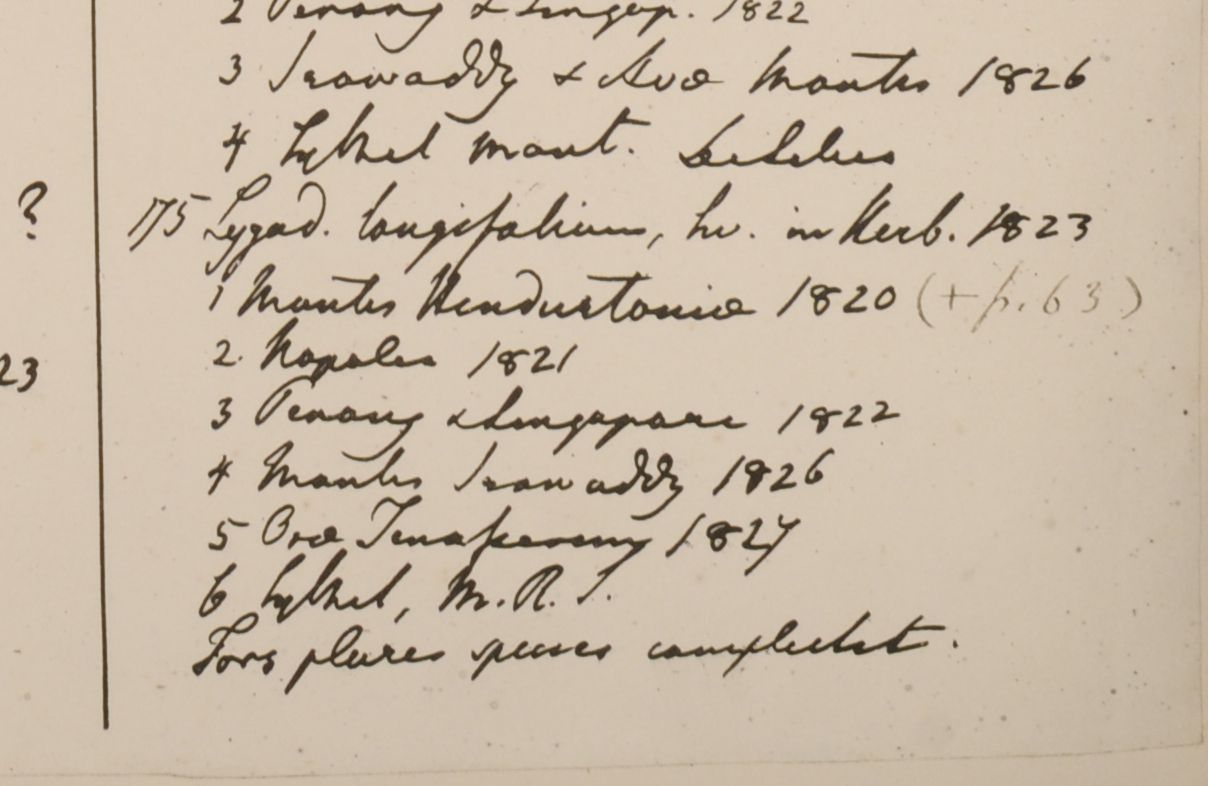 2 Penang & Singap. 1822
3 Irawaddy & Avae Montes 1826
4 Sylhet mont.
? 175 Lygod. longifolium, hv. in Herb. 1823
1 Montes Hindustaniae 1820 (+ p. 63)
23 2. Napalia 1821
3 Penang & Singapore 1822
4 Montes Irawaddy 1826
5 Orae Tenasserim 1827
6 Sylhet, M. R. S.
Fors plures species complectet.